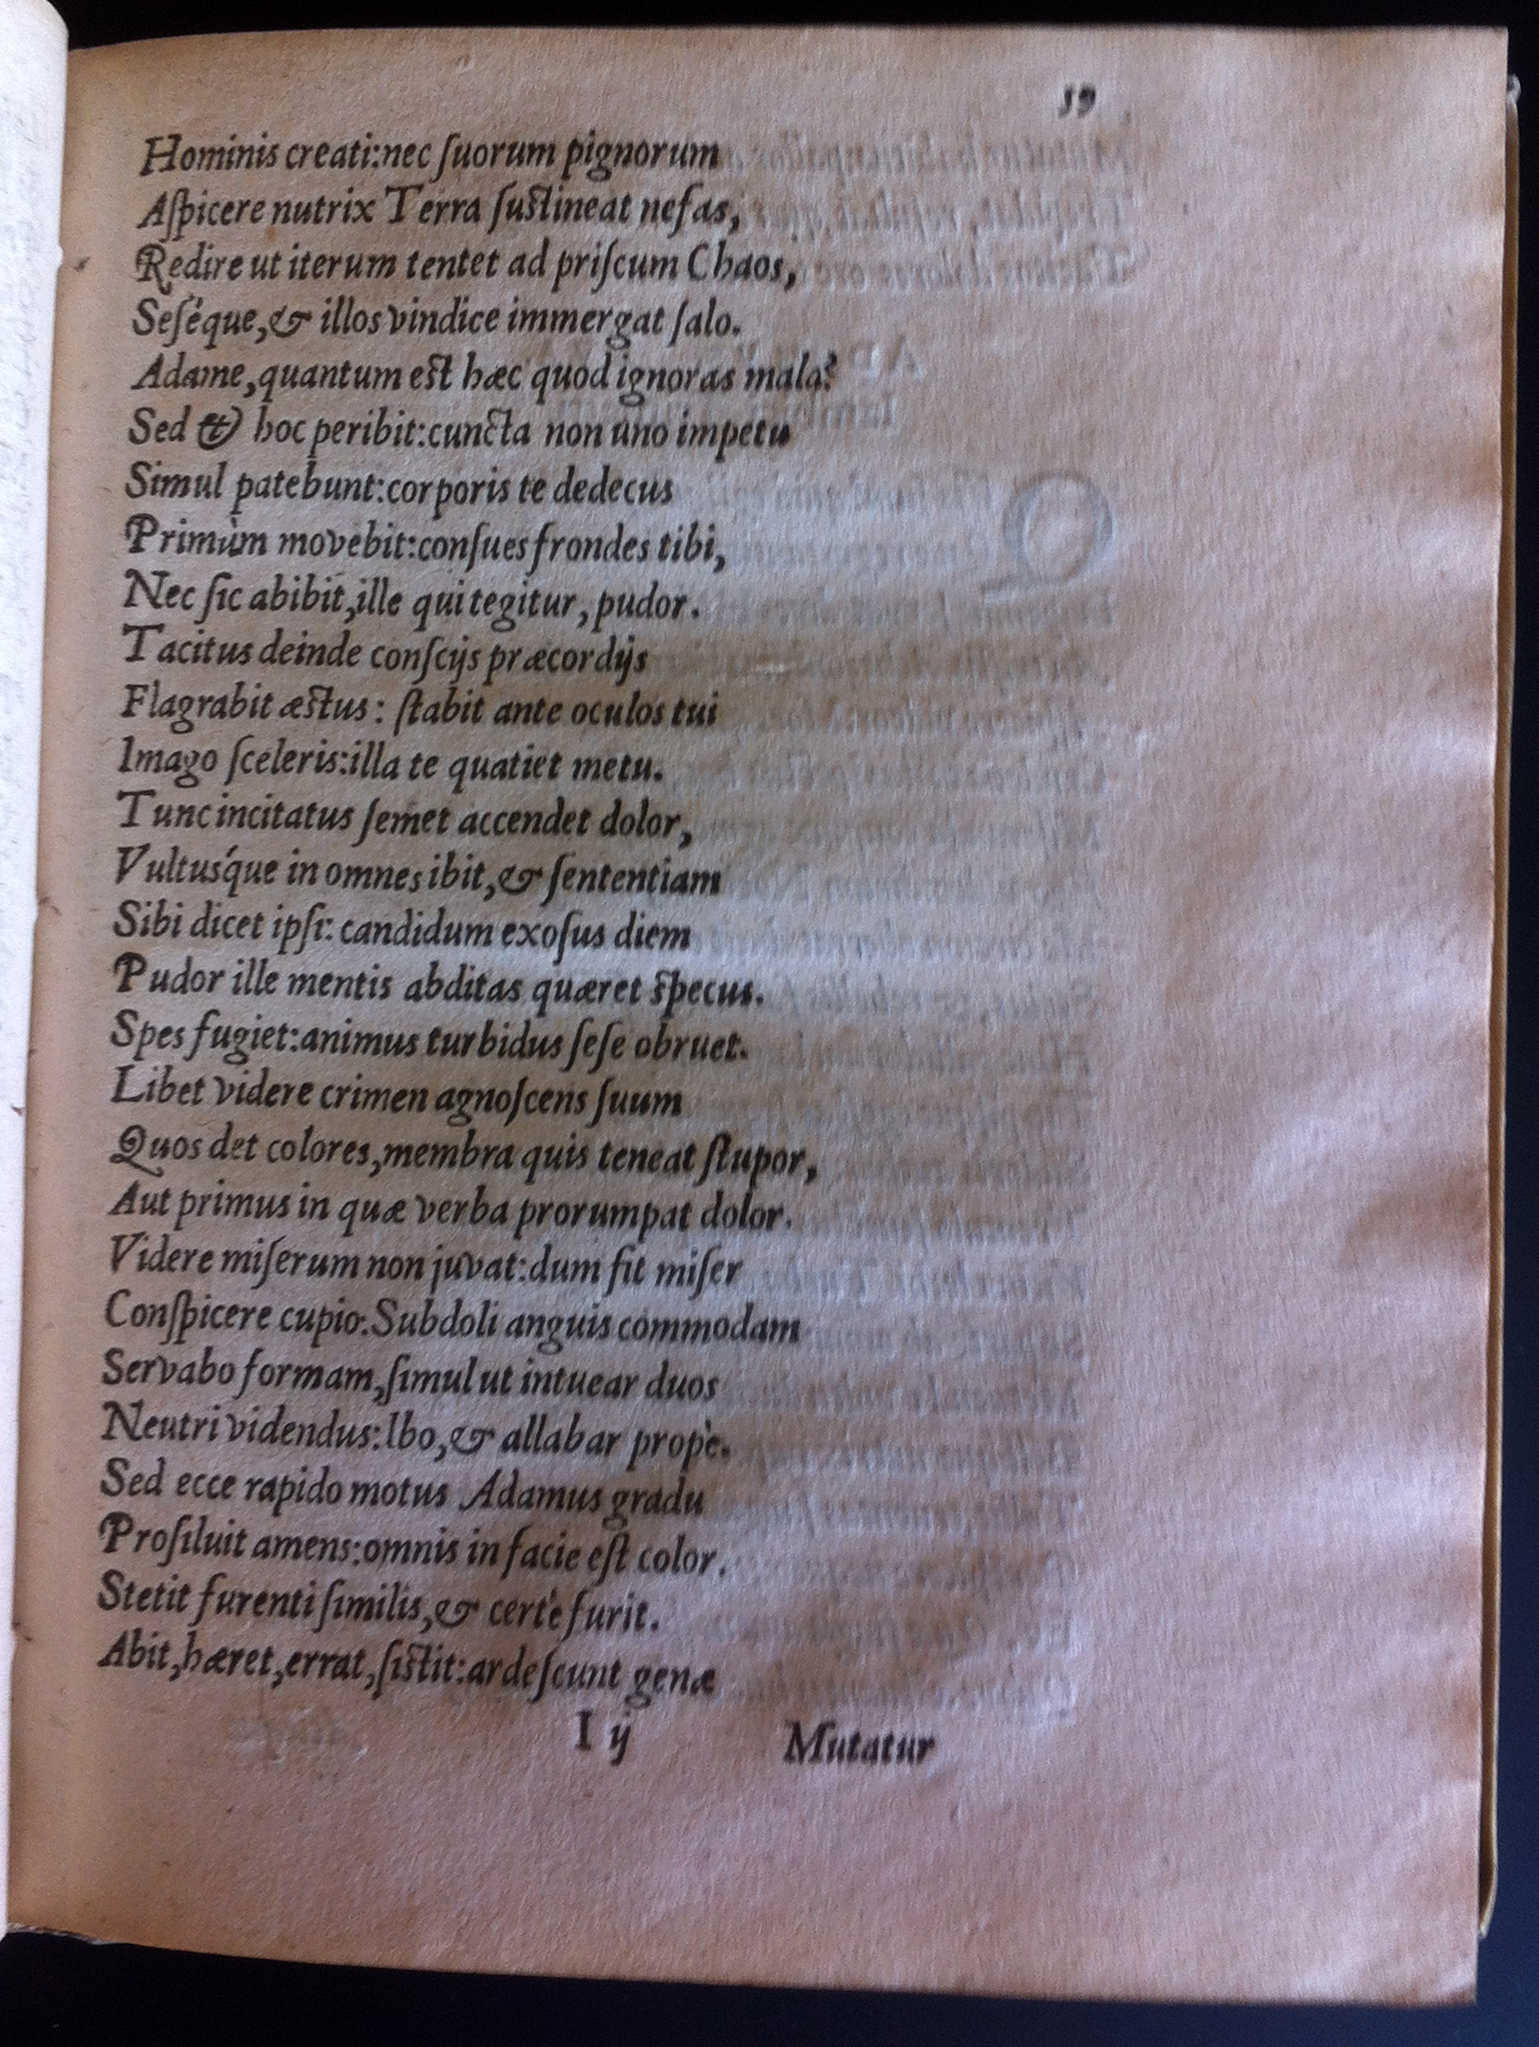 59
Hominis creati:nec ſuorum pignorum
Aſpicere nutrix Terra ſuſtineat nefas,
Redire ut iterum tentet ad priſcum Chaos,
Seſéque,& illos vindice immergat ſalo.
Adame,quantum eſt hæc quod ignoras mala?
Sed & hoc peribit:cuncta non uno impetu
Simul patebunt:corporis te dedecus
Primùm movebit:conſues frondes tibi,
Nec ſic abibit,ille qui tegitur, pudor.
Tacitus deinde conſcijs præcordijs
Flagrabit æſtus: ſtabit ante oculos tui
Imago ſceleris:illa te quatiet metu.
Tunc incitatus ſemet accendet dolor,
Vultuſ́que in omnes ibit,& ſententiam
Sibi dicet ipſi: candidum exoſus diem
Pudor ille mentis abditas quæret ſpecus.
Spes fugiet:animus turbidus ſeſe obruet.
Libet videre crimen agnoſcens ſuum
Quos det colores,membra quis teneat ſtupor,
Aut primus in quæ verba prorumpat dolor.
Videre miſerum non juvat:dum fit miſer
Conſpicere cupio.Subdoli anguis commodam
Servabo formam,ſimul ut intuear duos
Neutri videndus:Ibo,& allabar propè.
Sed ecce rapido motus Adamus gradu
Proſiluit amens:omnis in facie eſt color.
Stetit furenti ſimilis,& certè furit.
Abit,hæret,errat,ſiſtit:ardeſcunt genæ
I ij Mutatur